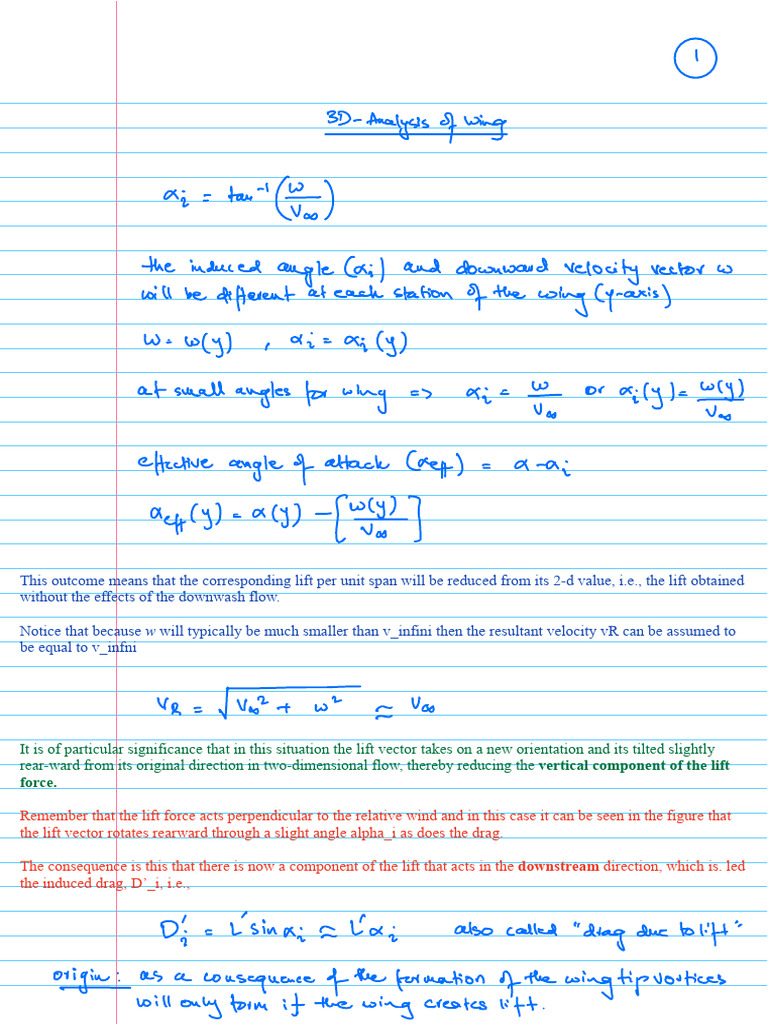 1
3D-Analysis of wing
αi = tan⁻¹(w/V∞)
the induced angle (αi) and downward velocity vector w
will be different at each station of the wing (y-axis)
w = w(y) , αi = αi(y)
at small angles for wing => αi = w/V∞ or αi(y) = w(y)/V∞
effective angle of attack (αeff) = α-αi
αeff(y) = α(y) - [w(y)/V∞]
This outcome means that the corresponding lift per unit span will be reduced from its 2-d value, i.e., the lift obtained
without the effects of the downwash flow.
Notice that because w will typically be much smaller than v_infini then the resultant velocity vR can be assumed to
be equal to v_infni
VR = √(V∞² + w²) ≃ V∞
It is of particular significance that in this situation the lift vector takes on a new orientation and its tilted slightly
rear-ward from its original direction in two-dimensional flow, thereby reducing the vertical component of the lift
force.
Remember that the lift force acts perpendicular to the relative wind and in this case it can be seen in the figure that
the lift vector rotates rearward through a slight angle alpha_i as does the drag.
The consequence is this that there is now a component of the lift that acts in the downstream direction, which is. led
the induced drag, D'_i, i.e.,
D'i = L'sinαi ≃ L'αi also called "drag due to lift"
origin: as a consequence of the formation of the wing tip vortices
will only form if the wing creates lift.